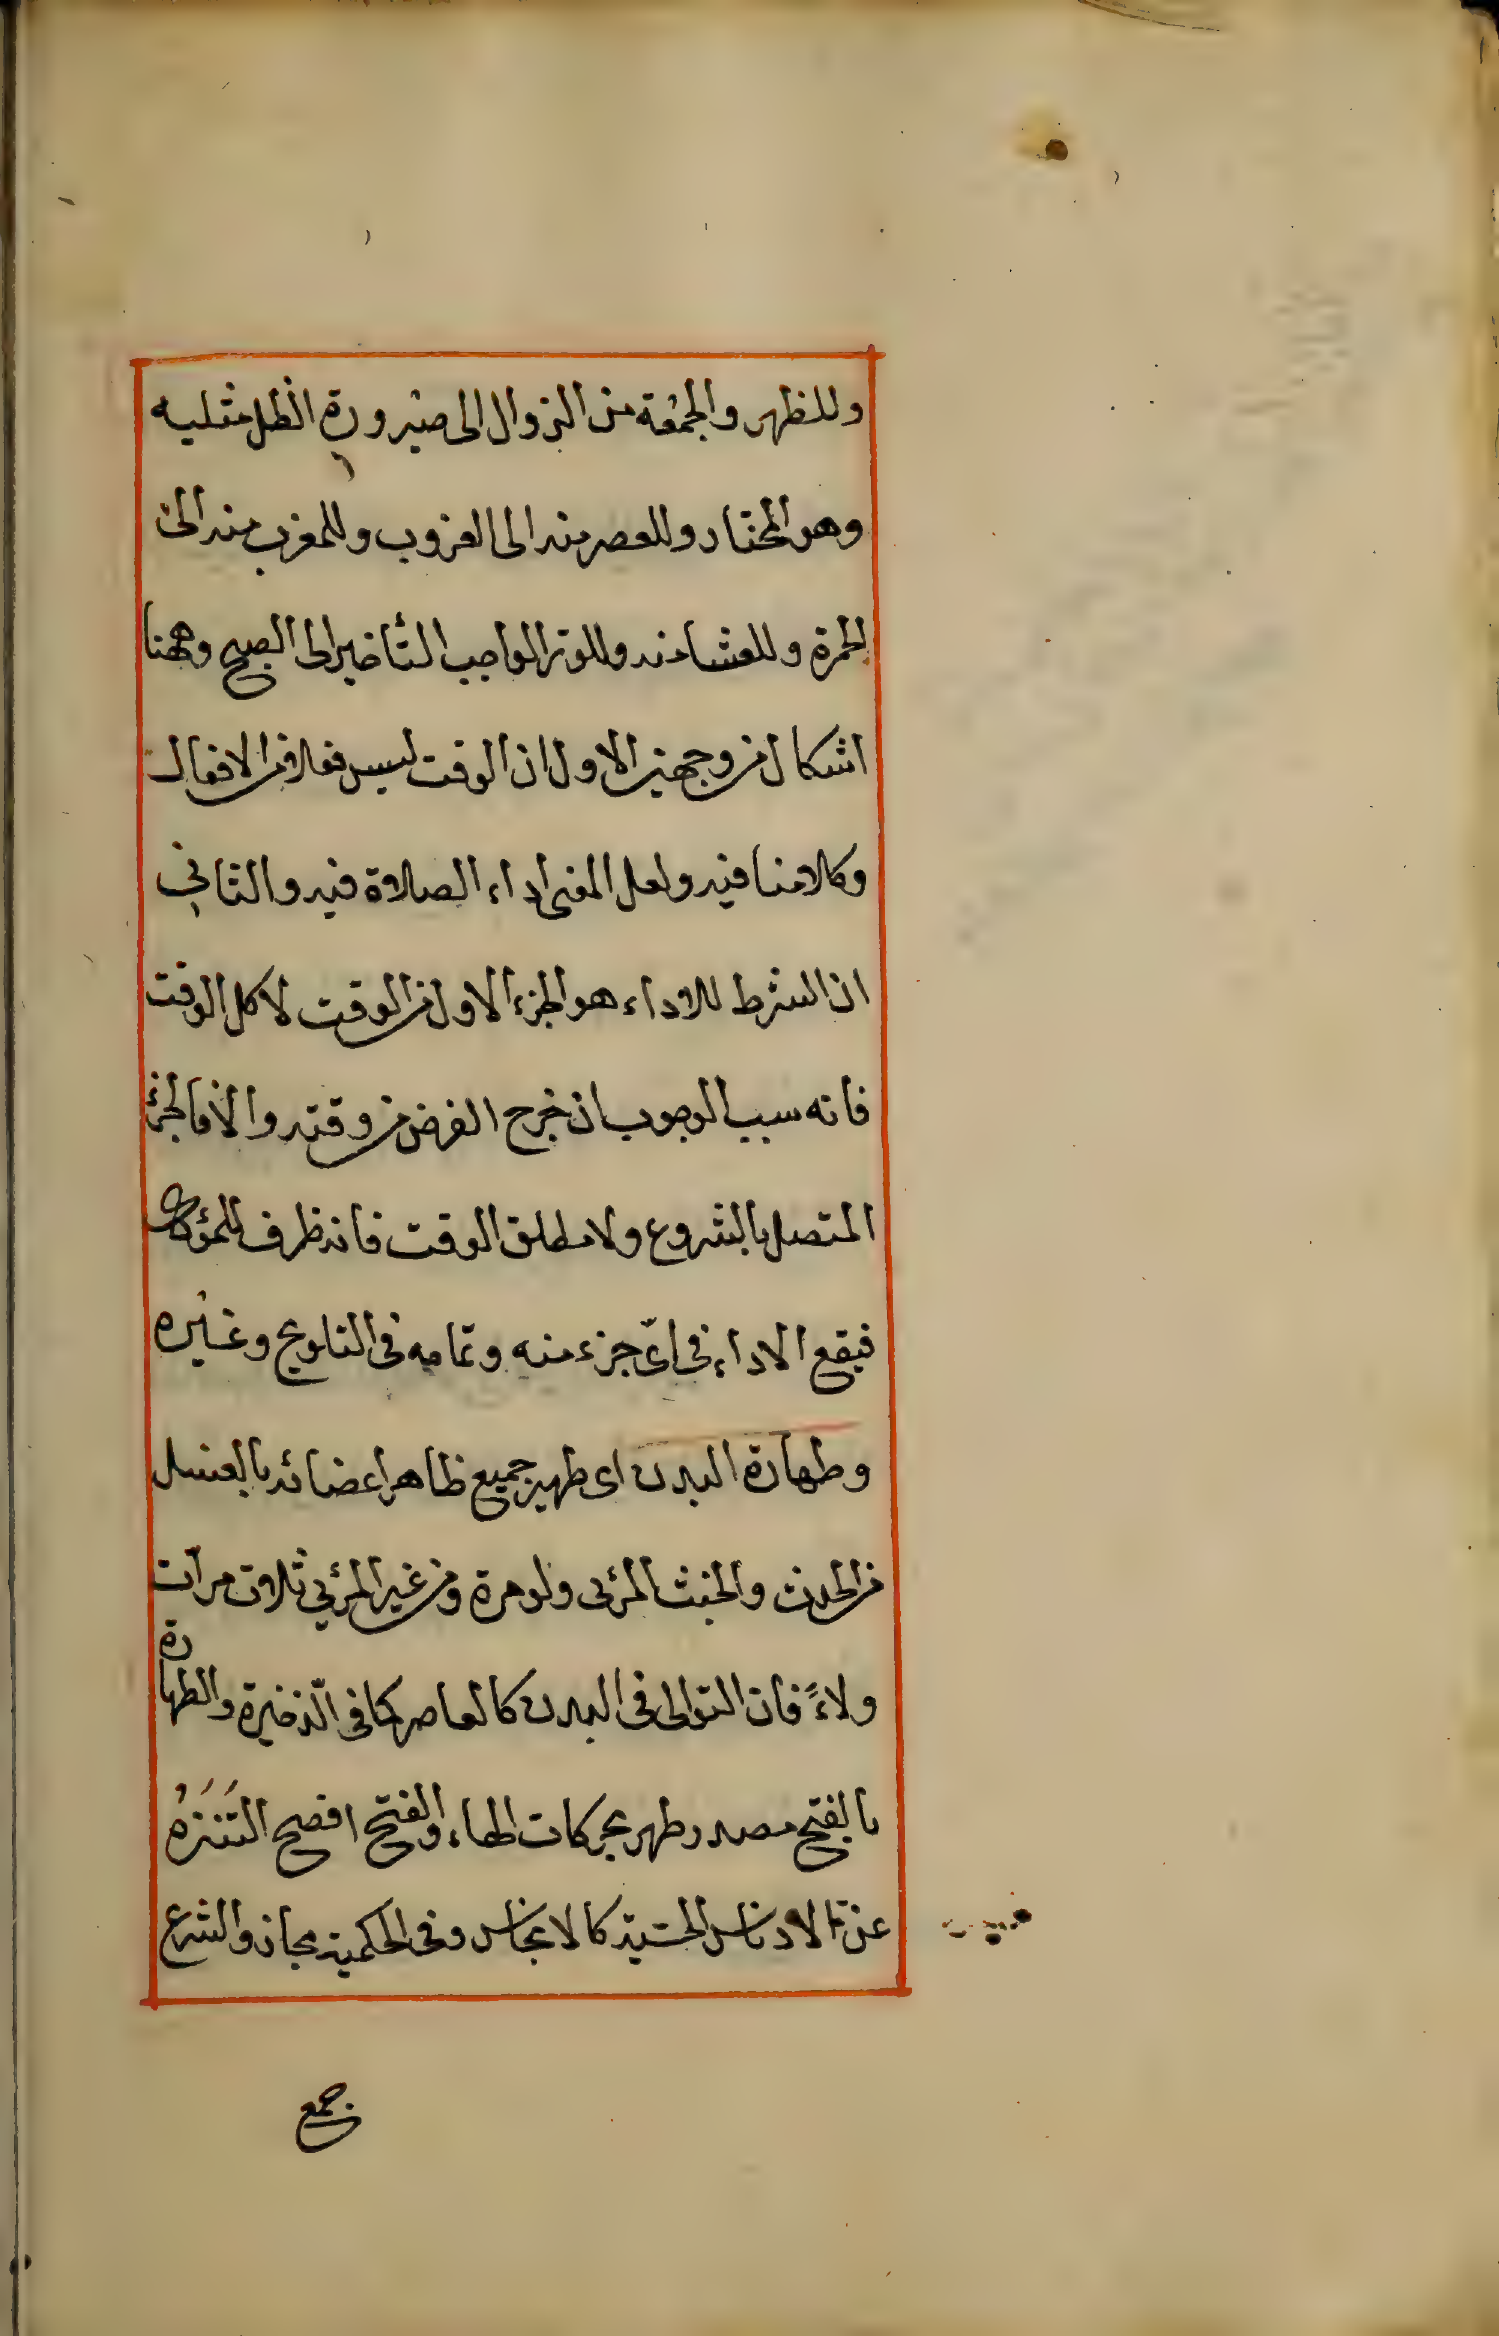 وللظهر والجمعة من الزوال الى صيرورة الظل مثليه
وهو المختار وللعصر منه الى الغروب وللمغرب منه الى
الحمرة وللعشا منه وللوتر الواجب التأخير الى الصبح وههنا
اشكال من وجهين الاول ان الوقت ليس فعلا من الافعال
وكلامنا فيه ولعل المعنى اداء الصلاة فيه والثاني
ان الشرط للاداء هو الجزء الاول من الوقت لا كل الوقت
فانه سبب الوجوب ان خرج الفرض من وقته والا فالجزء
المتصل بالشروع ولا مطلق الوقت فانه ظرف للمؤدى
فيقع الاداء في اىّ جزء منه وتمامه فى التلويح وغيره
وطهارة البدن اى طهير جميع ظاهر اعضائه بالغسل
من الحدث والخبث المرئى ولو مرة ومن غير المرئي ثلاث مرات
ولاءً فان التوالى فى البدن كالعاصر كما فى الذخيرة والطهارة
بالفتح مصدر طهر بحركات الهاء والفتح افصح التَنَزه
عن الادناس الحسية كالانجاس وفى الحكمية مجاز والشرع
جمع